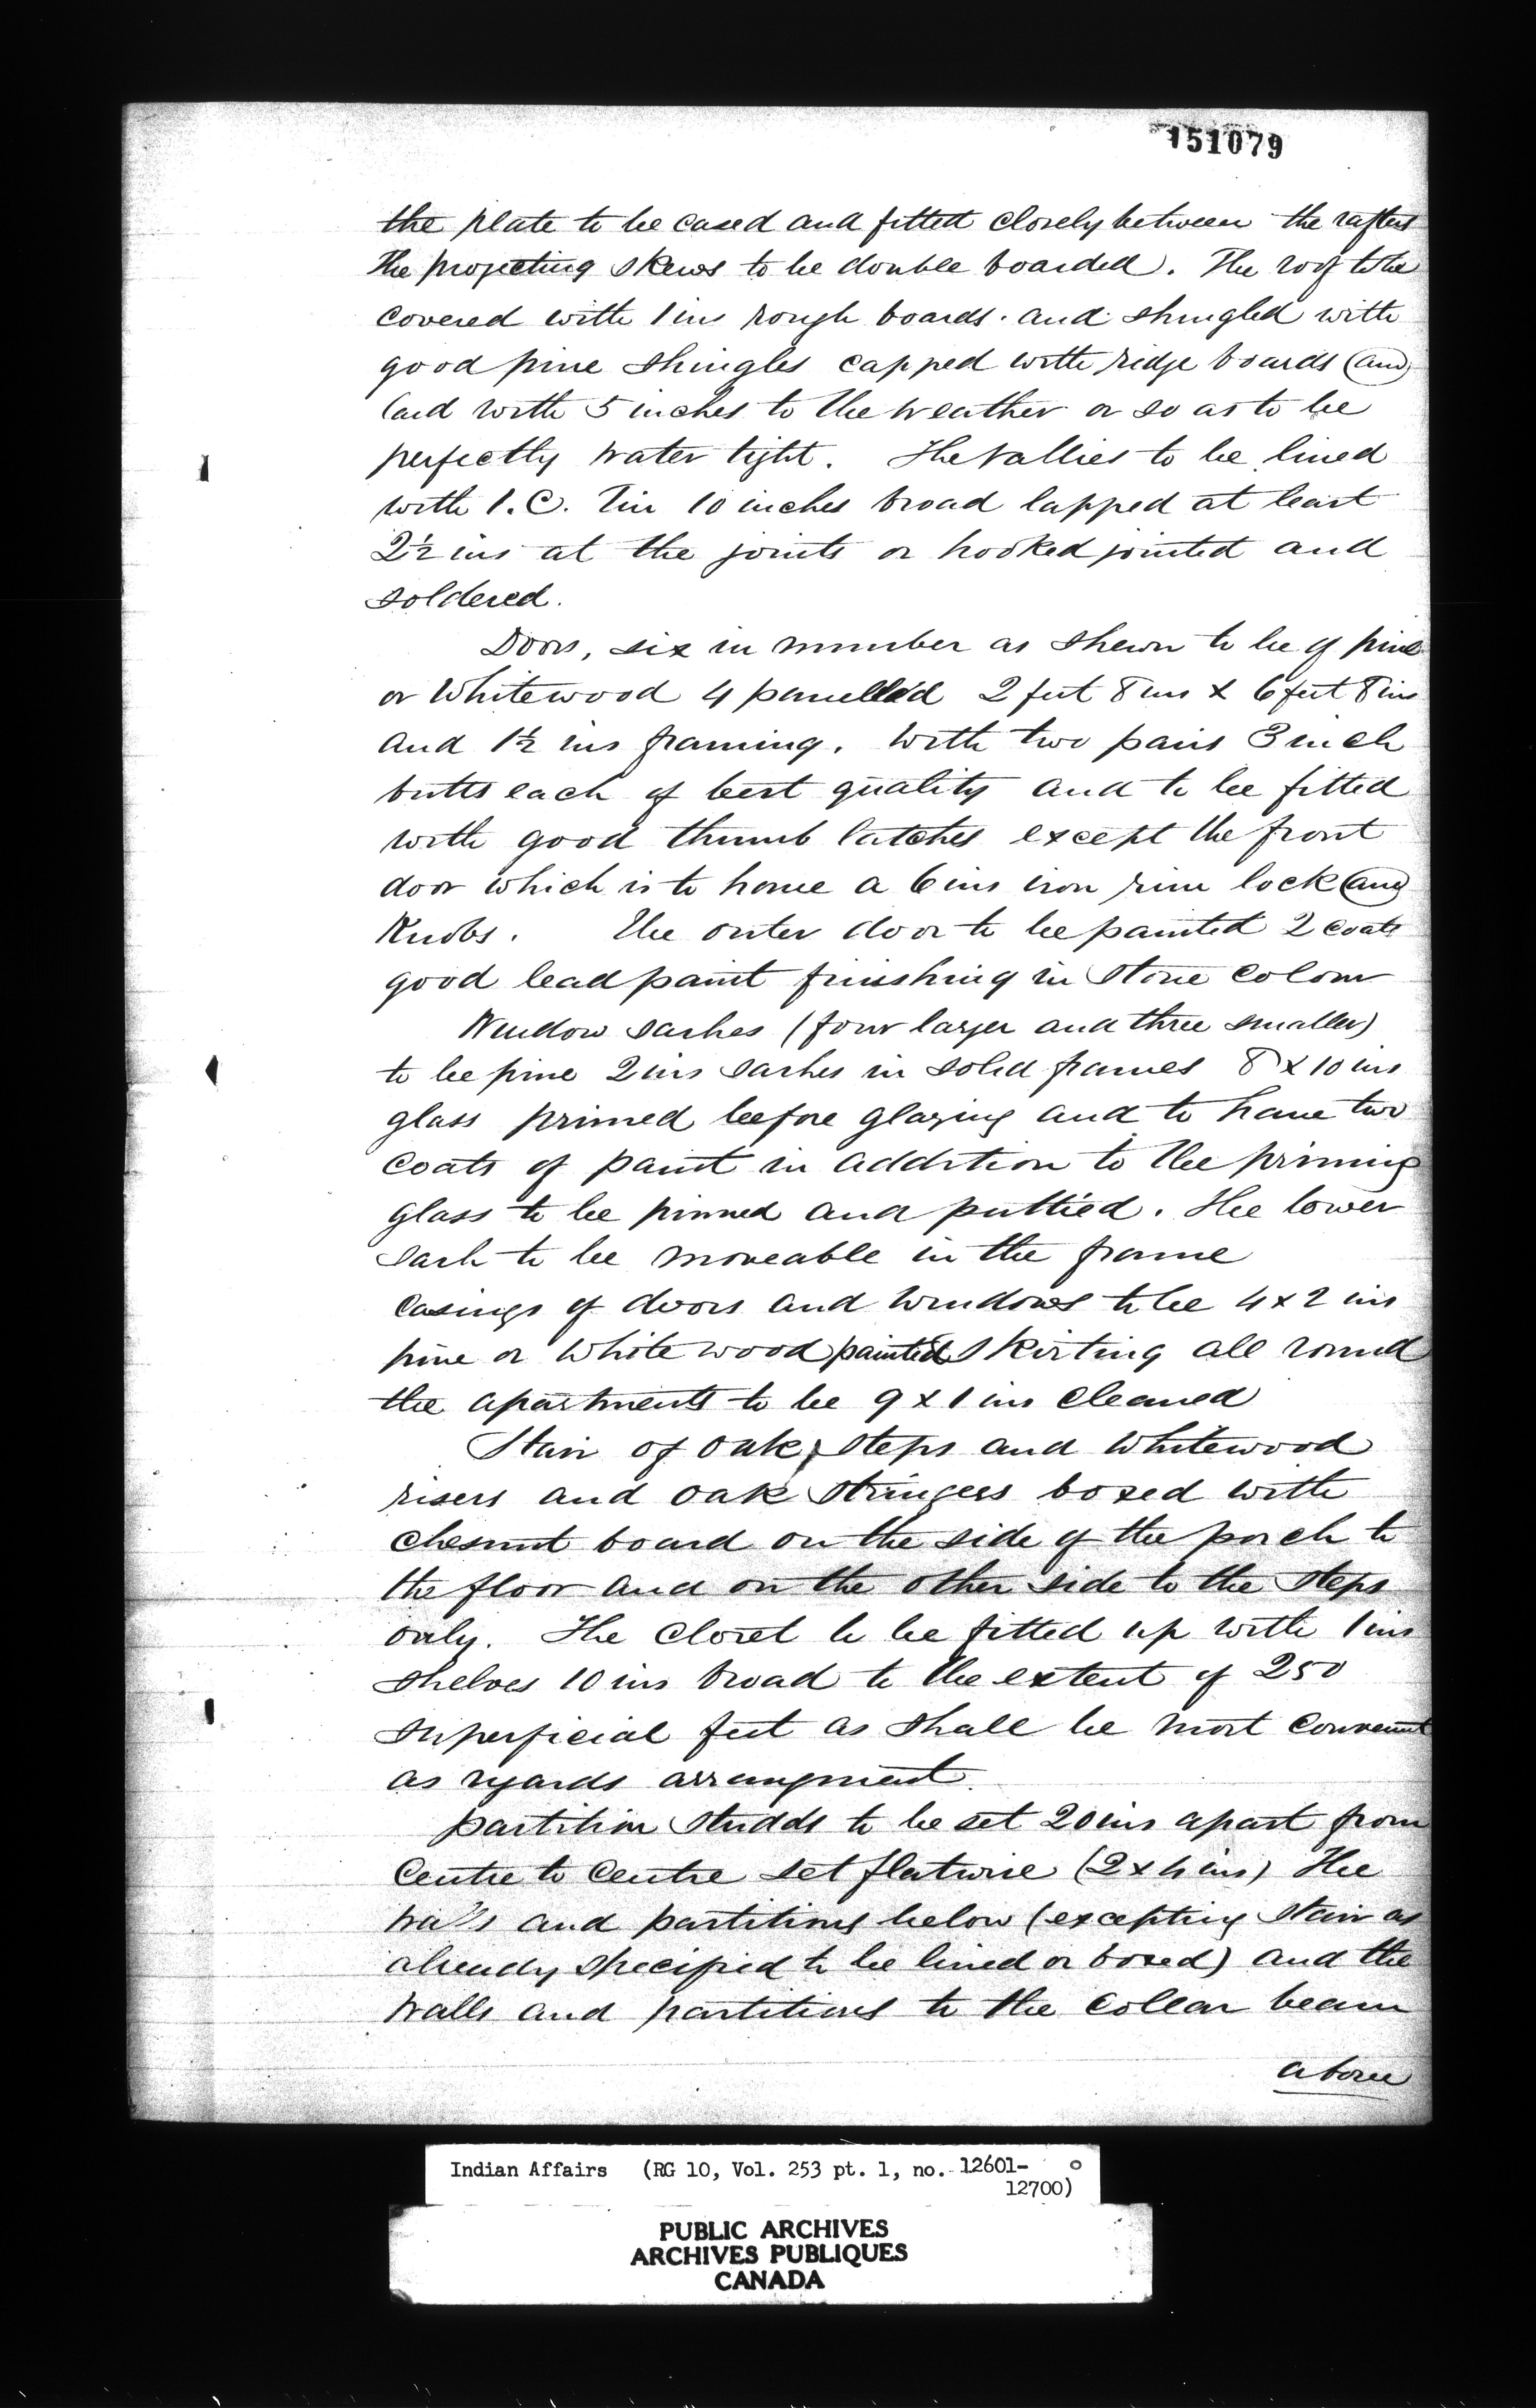 151079
the plate to be cased and fitted closely between the rafters
The projecting skews to be double boarded. The roof to be
covered with 1 ins rough boards. and shingled with
good pine shingles capped with ridge boards and
laid with 5 inches to the weather or so as to be
perfectly water tight. The vallies to be lined
with 1.C. Tin 10 inches broad lapped at least
2½ ins at the joints or hooked jointed and
soldered.
Doors, six in number as shewn to be of pine
or Whitewood 4 panelled 2 feet 8 ins x 6 feet 8 ins
and 1½ ins framing. With two pairs 3 inch
butts each of best quality and to be fitted
with good thumb latches except the front
door which is to have a 6 ins iron rim lock and
Knobs. The outer door to be painted 2 coats
good lead paint finishing in Stone Colour
Window sashes (four larger and three smaller)
to be pine 2 ins sashes in solid frames 8 x 10 ins
glass primed before glazing and to have two
coats of paint in addition to the priming
glass to be pinned and puttied. The lower
sash to be moveable in the frame
Casings of doors and windows to be 4 x 2 ins
pine or White wood painted Skirting all round
the apartments to be 9 x 1 ins cleaned
Stair of oak steps and Whitewood
risers and oak stringers boxed with
chesnut board on the side of the porch to
the floor and on the other side to the steps
only. The closet to be fitted up with 1 ins
shelves 10 ins broad to the extent of 250
superficial feet as shall be most convenient
as regards arrangment.
partition studds to be set 20 ins apart from
Centre to Centre set flatwise (2 x 4 ins) The
walls and partitions below (excepting Stair as
already specified to be lined or boxed) and the
walls and partitions to the Collar beam
above
Indian Affairs (RG 10, Vol. 253 pt. 1, no. 12601-
12700)
PUBLIC ARCHIVES
ARCHIVES PUBLIQUES
CANADA